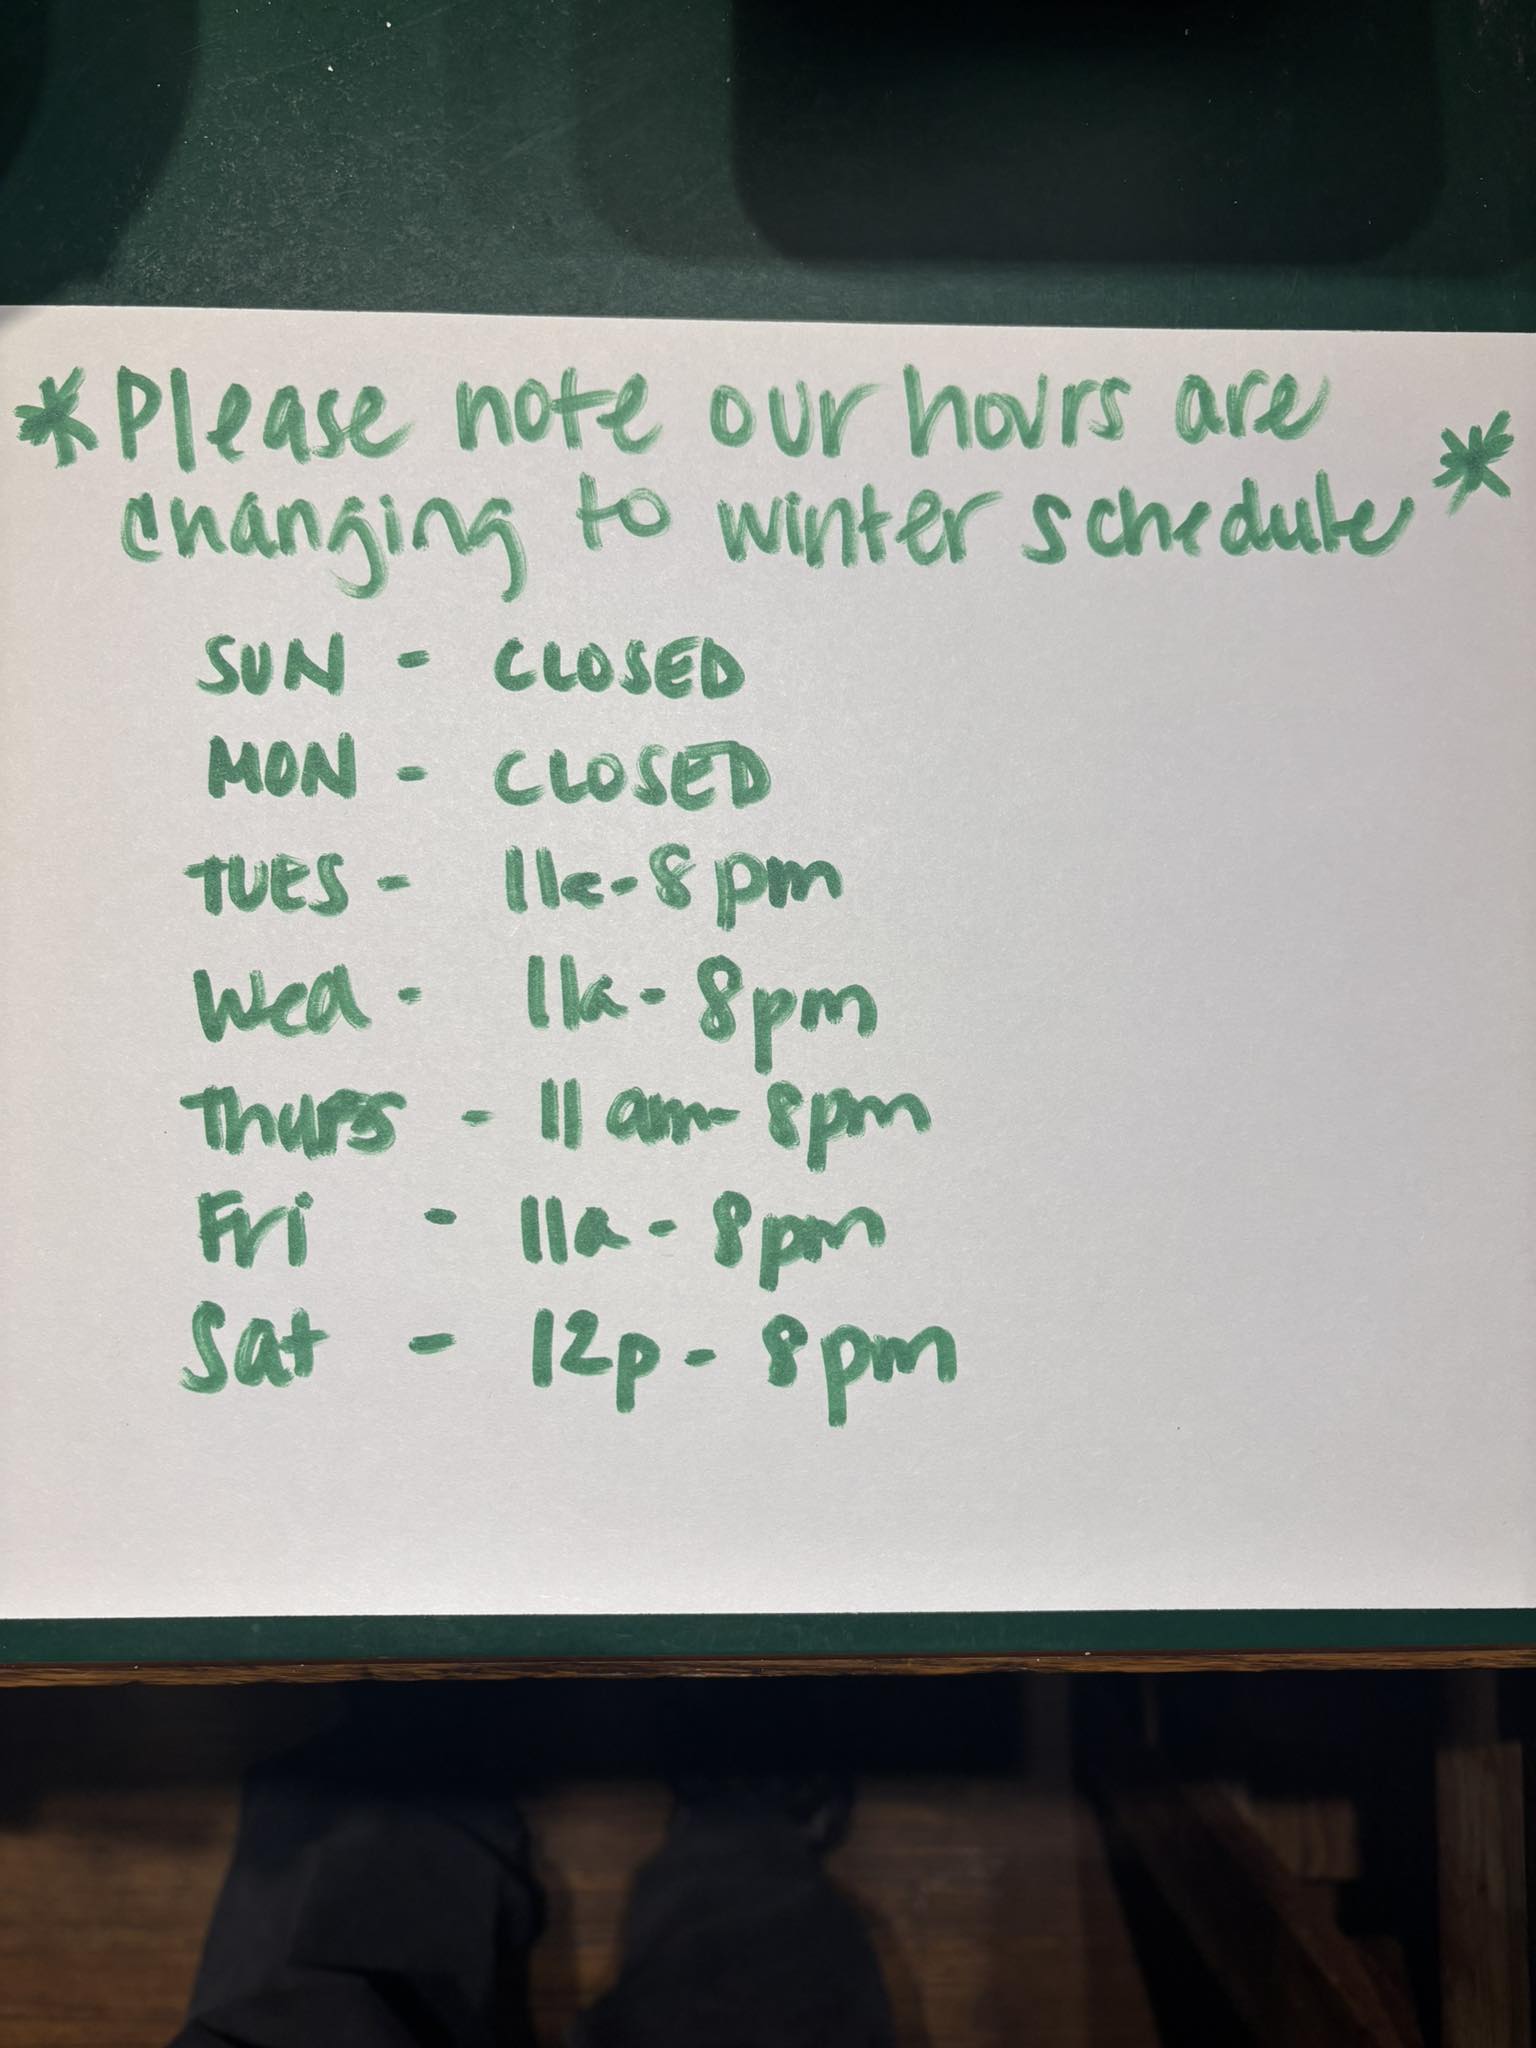 *Please note our hours are
changing to winter schedule*
SUN - CLOSED
MON - CLOSED
TUES - 11a-8pm
Wed - 11a-8pm
Thurs - 11am-8pm
Fri - 11a-8pm
Sat - 12p-8pm